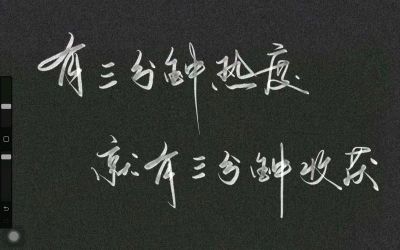 有三分钟热度
就有三分钟收获